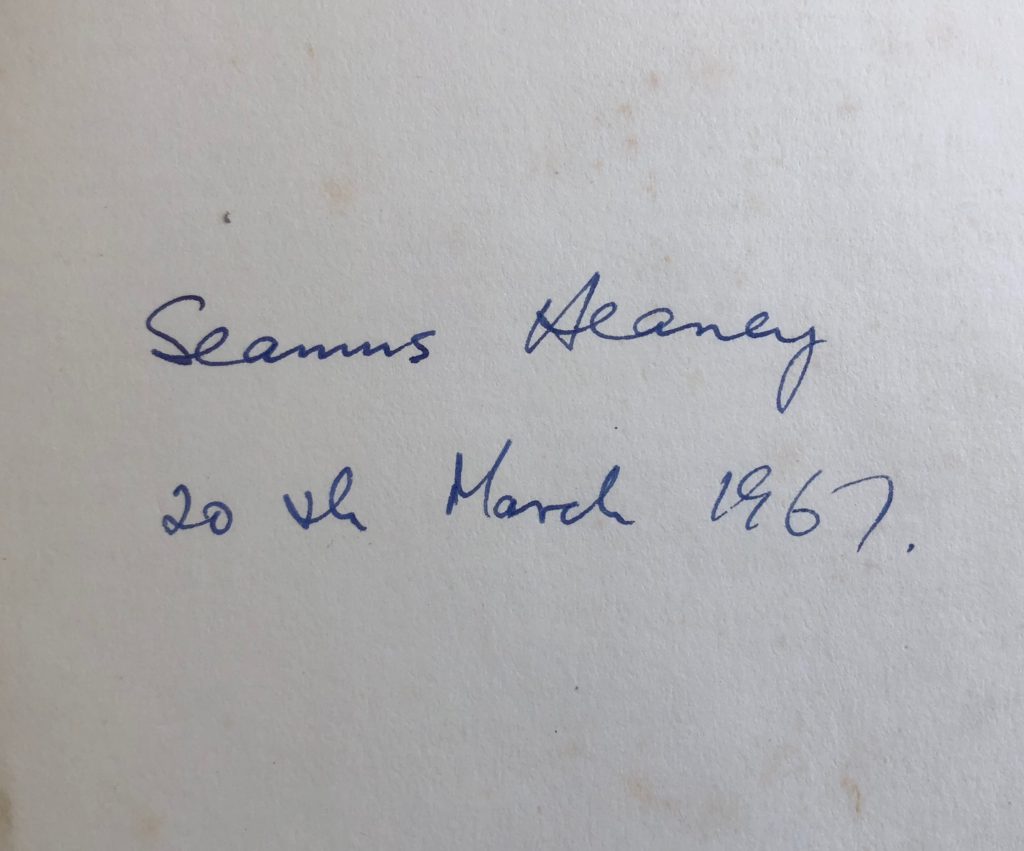 Seamus Heaney
20th March 1967.